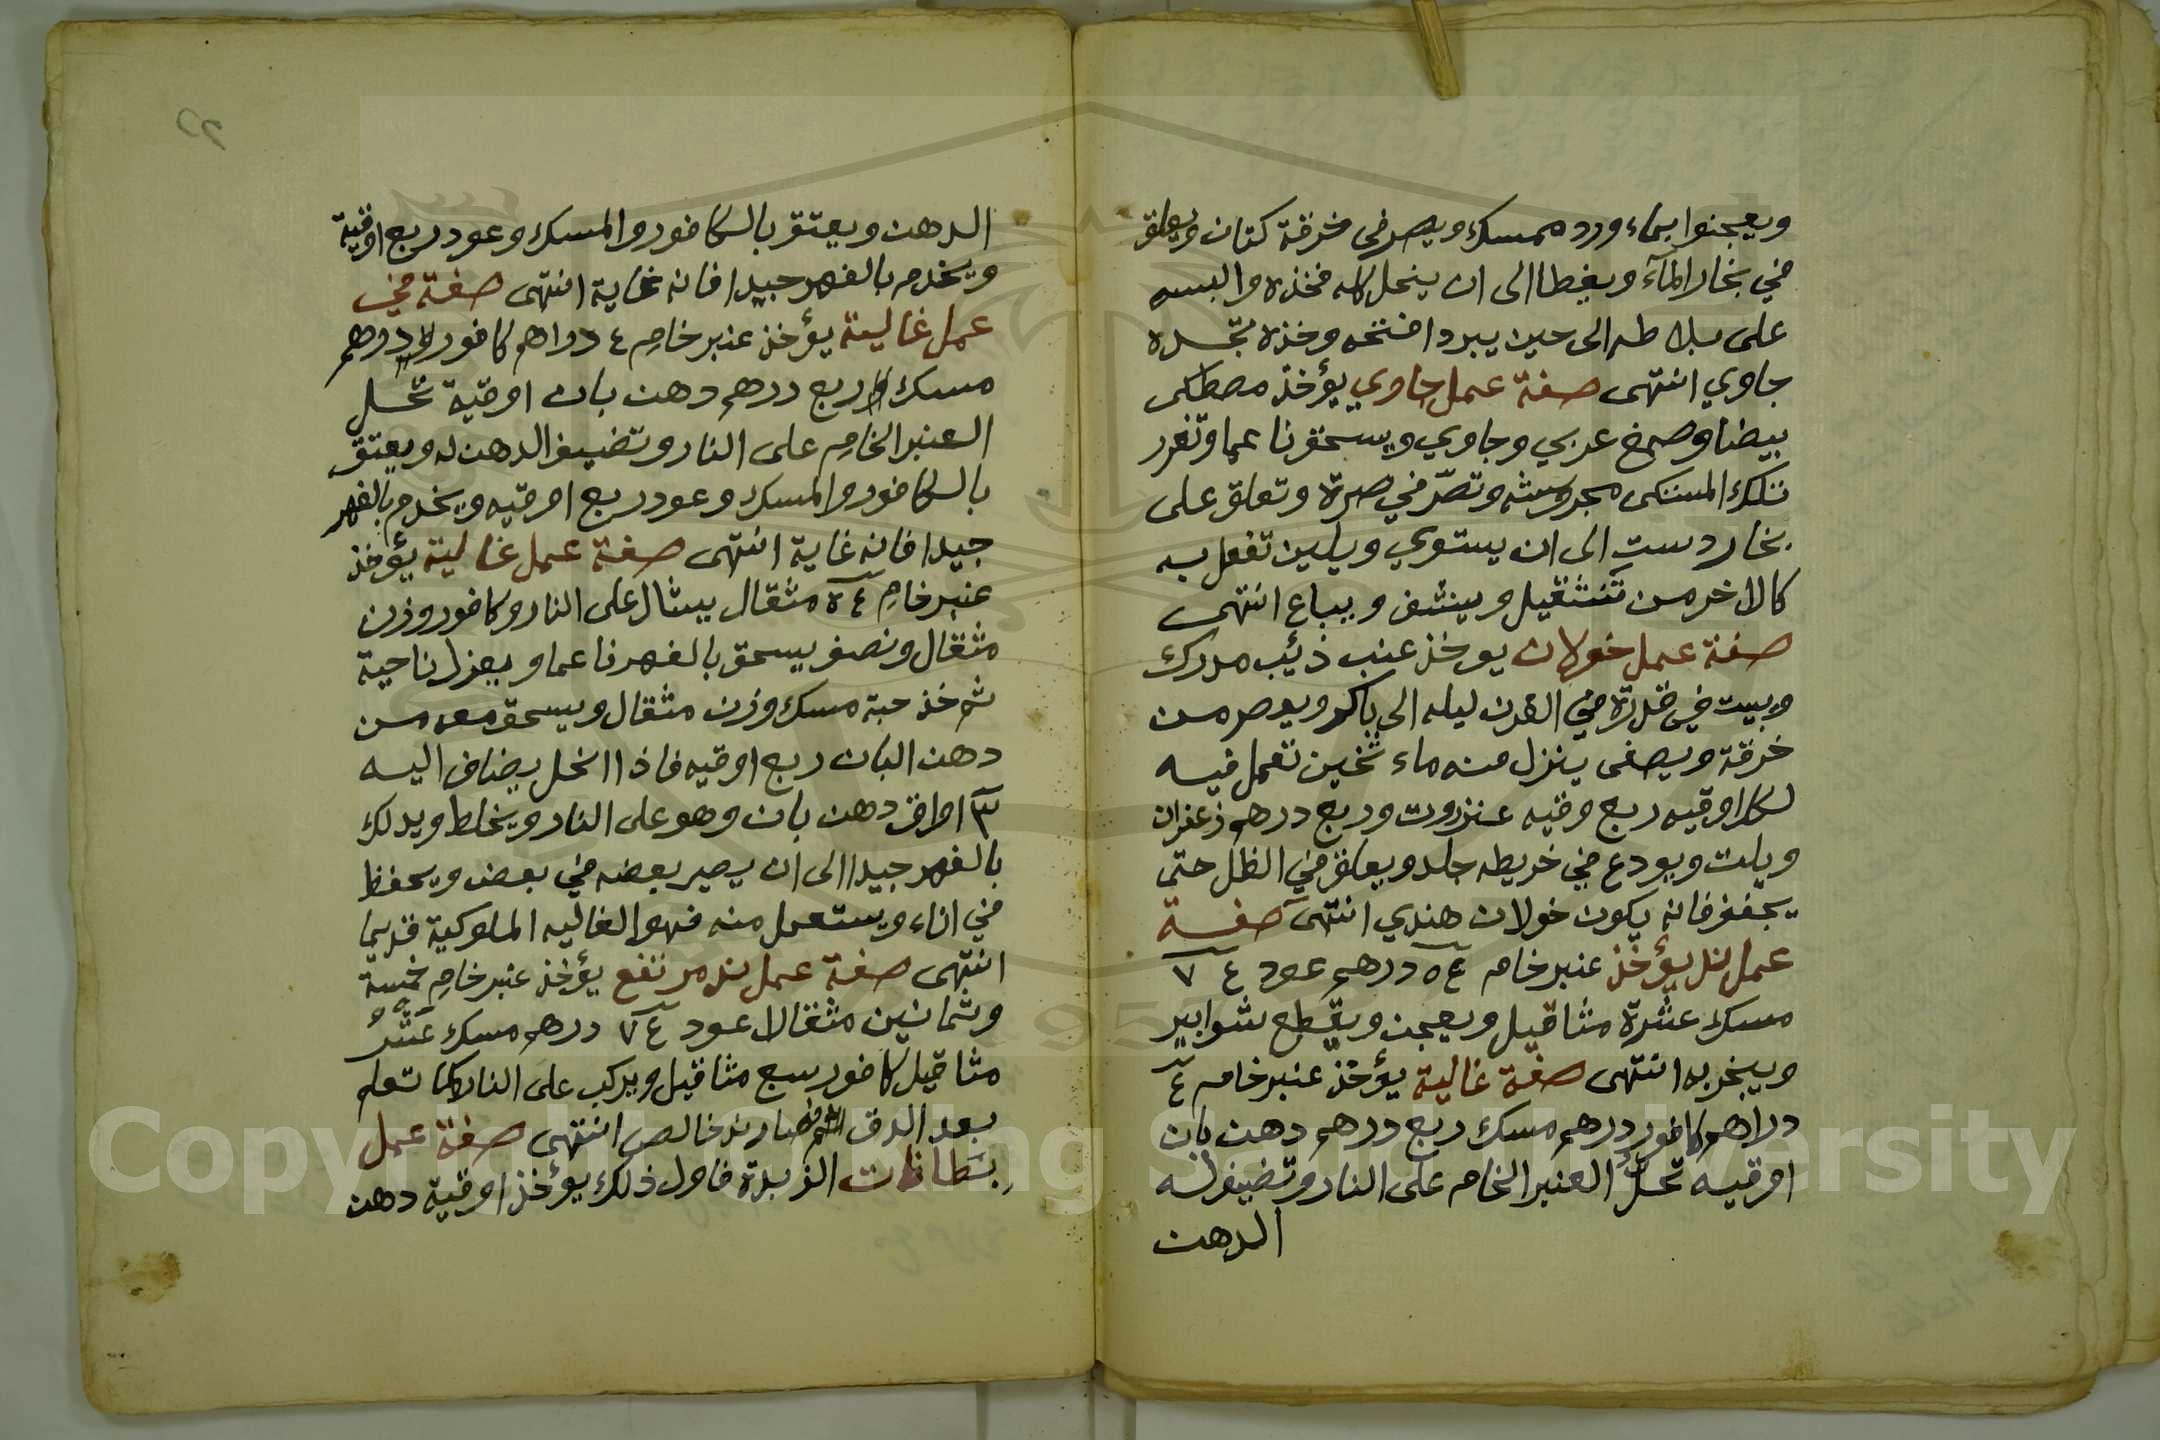 ويعجنوا بماء ورد ممسك ويصر فى خرقة كتان ويعلق
في بخار المآء ويغطا الى ان ينحل كله فخذه والبسه
على بلاطه الى حين يبرد افتحه وخذه تجده
جاوي انتهى صفة عمل جاوي يؤخذ مصطكى
بيضا وصمغ عربي وجاوي ويسحقو ناعما وتغرر
تلك المستكى مجروشه وتصّر في صرة وتعلق على
بخار دست الى ان يستوي ويلين تفعل به
كالاخر من تشقيل وينشف ويباع انتهى
صفة عمل خولان يوخذ عنب ذئيب مدرك
وبيت في قدرة في الفرن ليله الى باكر ويعصر من
خرقة ويصفى ينزل منه ماء ثخين تعمل فيه
لكل اوقيه ربع وقيه عنزروت وربع درهم زعفران
ويلت ويودع في خريطه جلد ويعلق في الظل حتى
يجفف فانه يكون خولان هندي انتهى صفة
عمل ند يؤخذ عنبر خام ٤٥ درهم عود ٤ ٧
مسك عشرة مثاقيل ويعجن ويقطع شوابير
ويبخر به انتهى صفة غالية يؤخذ عنبر خام ٤
دراهم كافور درهم مسك ربع درهم دهن بان
اوقيه تحلّ العنبر الخام على النار وتضيف له
الدهن
الدهن ويعتق بالكافور والمسك وعود ربع اوقية
ويخدم بالفهر جيدا فانه غاية انتهى صفة في
عمل غالية يؤخذ عنبر خام ٤ دراهم كافور درهم
مسك ربع درهم دهن بان اوقية تحل
العنبر الخام على النار وتضيف الدهن له ويعتق
بالكافور والمسك وعود ربع اوقيه ويخدم بالفهر
جيدا فانه غاية انتهى صفة عمل غالية يؤخذ
عنبر خام ٤٥ مثقال يشال على النار وكافور وزن
مثقال ونصف يسحق بالفهر ناعما ويعزل ناحية
ثم خذ حبة مسك وزن مثقال ويسحق معه من
دهن البان ربع اوقيه فاذا انحل يضاف اليه
٣ اواق دهن بان وهو على النار ويخلط ويدلك
بالفهر جيدا الى ان يصير بعضه في بعض ويحفظ
في اناء ويستعمل منه فهو الغاليه الملوكية قديما
انتهى صفة عمل ند مرتفع يؤخذ عنبر خام خمسة
وثمانين مثقالا عود ٤ ٧ درهم مسك عشر
مثاقيل كافور سبع مثاقيل ويركب على النار كما تعلم
بعد الدق صار ند خالص انتهى صفة عمل
بتطانات الزبدة فاول ذلك يؤخذ اوقية دهن